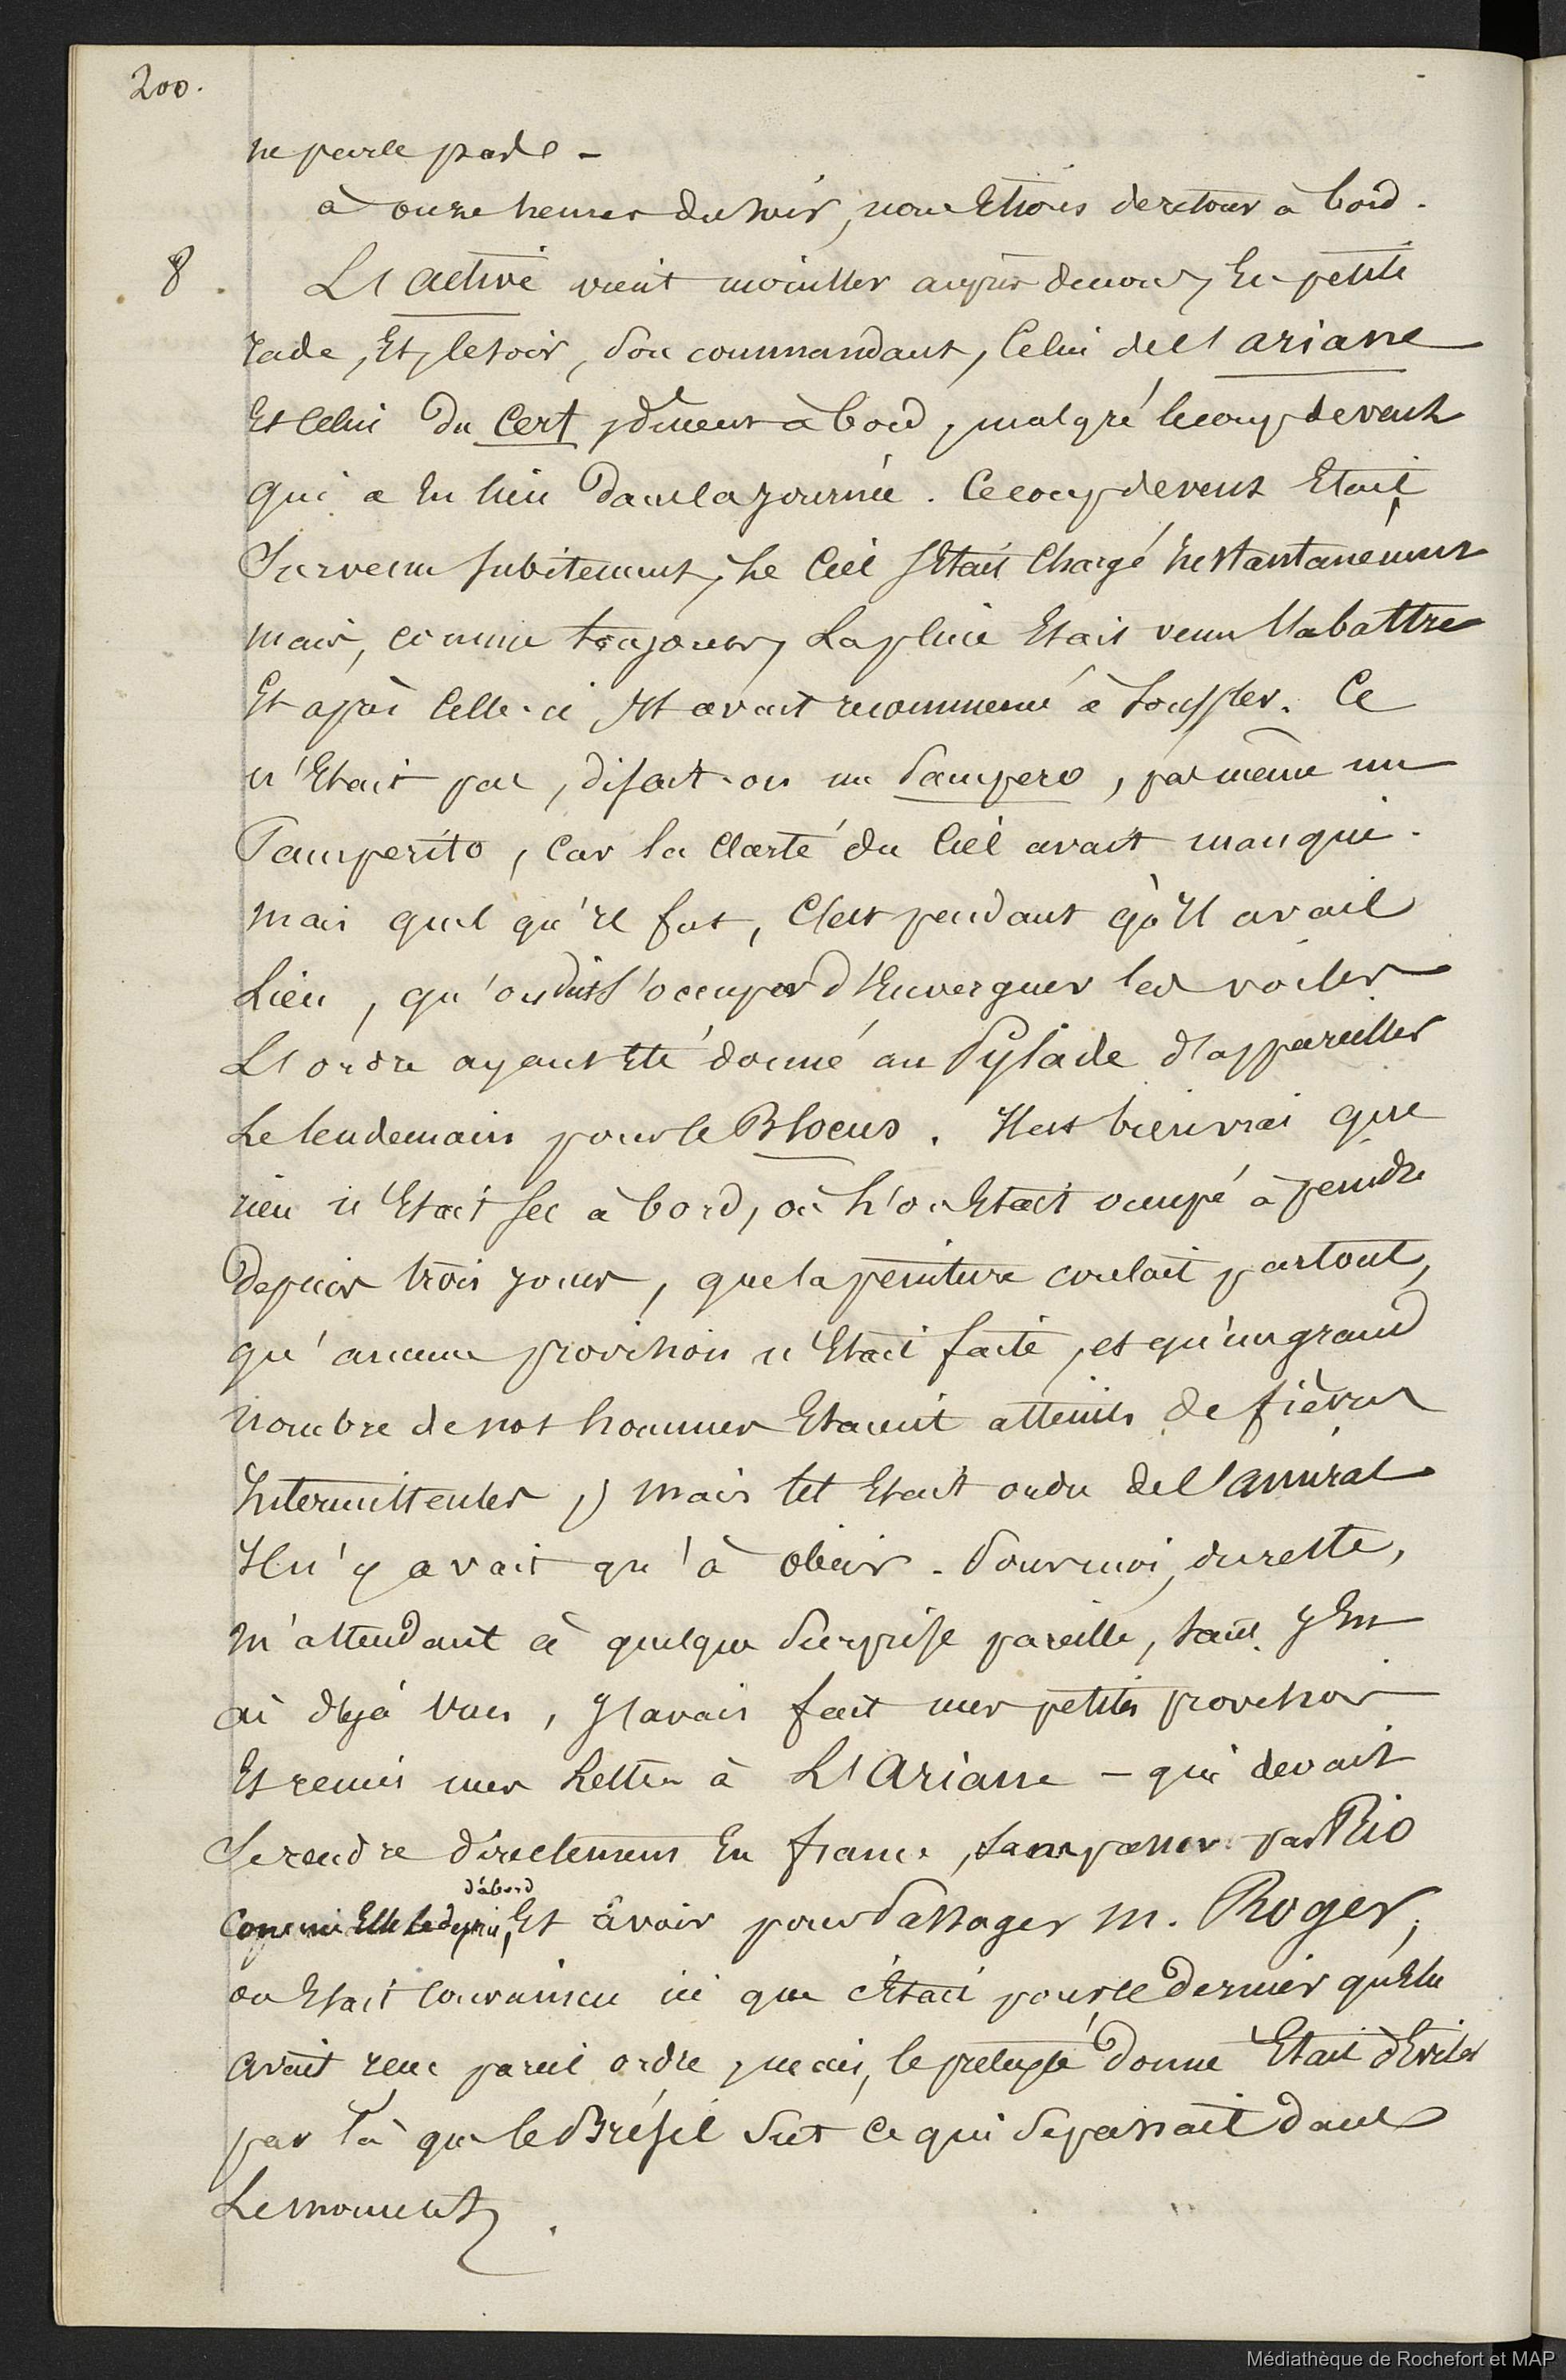 200.
ne parle pas.
à onze heures du soir, nous étions de retour à bord.
8. L'active vient mouiller auprès de nous, En petite
rade, Et, le soir, son commandant, Celui de l'ariane
Et Celui du Cerf dînent à bord, malgré le coup de vent
qui a Eu lieu dans la journée. Ce coup de vent Etait
Survenu subitement, Le Ciel s'Etait Chargé Instantanément
mais, comme toujours, La pluie Etait venu l'abattre
Et après Celle-ci Il avait recommencé à souffler. Ce
n'Etait pas, disait-on un Pampero, pas même un
Pamperito, Car la Clarté du Ciel avait manqué.
Mais quel qu'Il fut, C'est pendant qu'Il avait
Lieu, qu'on dut s'occuper d'Enverguer les voiles
L'ordre ayant Eté donné au Pylade d'appareiller
Le lendemain pour le Blocus. Il est bien vrai que
rien n'Etait sec à bord, où l'on Etait occupé à peindre
Depuis trois jours, que la peinture coulait partout,
qu'aucune provision n'Etait faite, et qu'un grand
nombre de nos hommes Etaient atteints de fièvres
Intermittentes, mais tel Etait ordre de l'amiral
Il n'y avait qu'à obéir. Pour moi, du reste,
m'attendant à quelque Surprise pareille, tant j'En
ai déjà vues, J'avais fait mes petites provisions
Et remis mes Lettres à L'Ariane – qui devait
Se rendre directement En france, sans passer par Rio
d'abord
Comme Elle le devait, Et avoir pour Passager M. Roger,
on Etait Convaincu ici que c'Etait pour ce dernier qu'Elle
avait reçu pareil ordre, mais, le prétexte Donné Etait d'Eviter
par là que le Brésil Sut Ce qui Se passait dans
Le moment.
Médiathèque de Rochefort et MAP